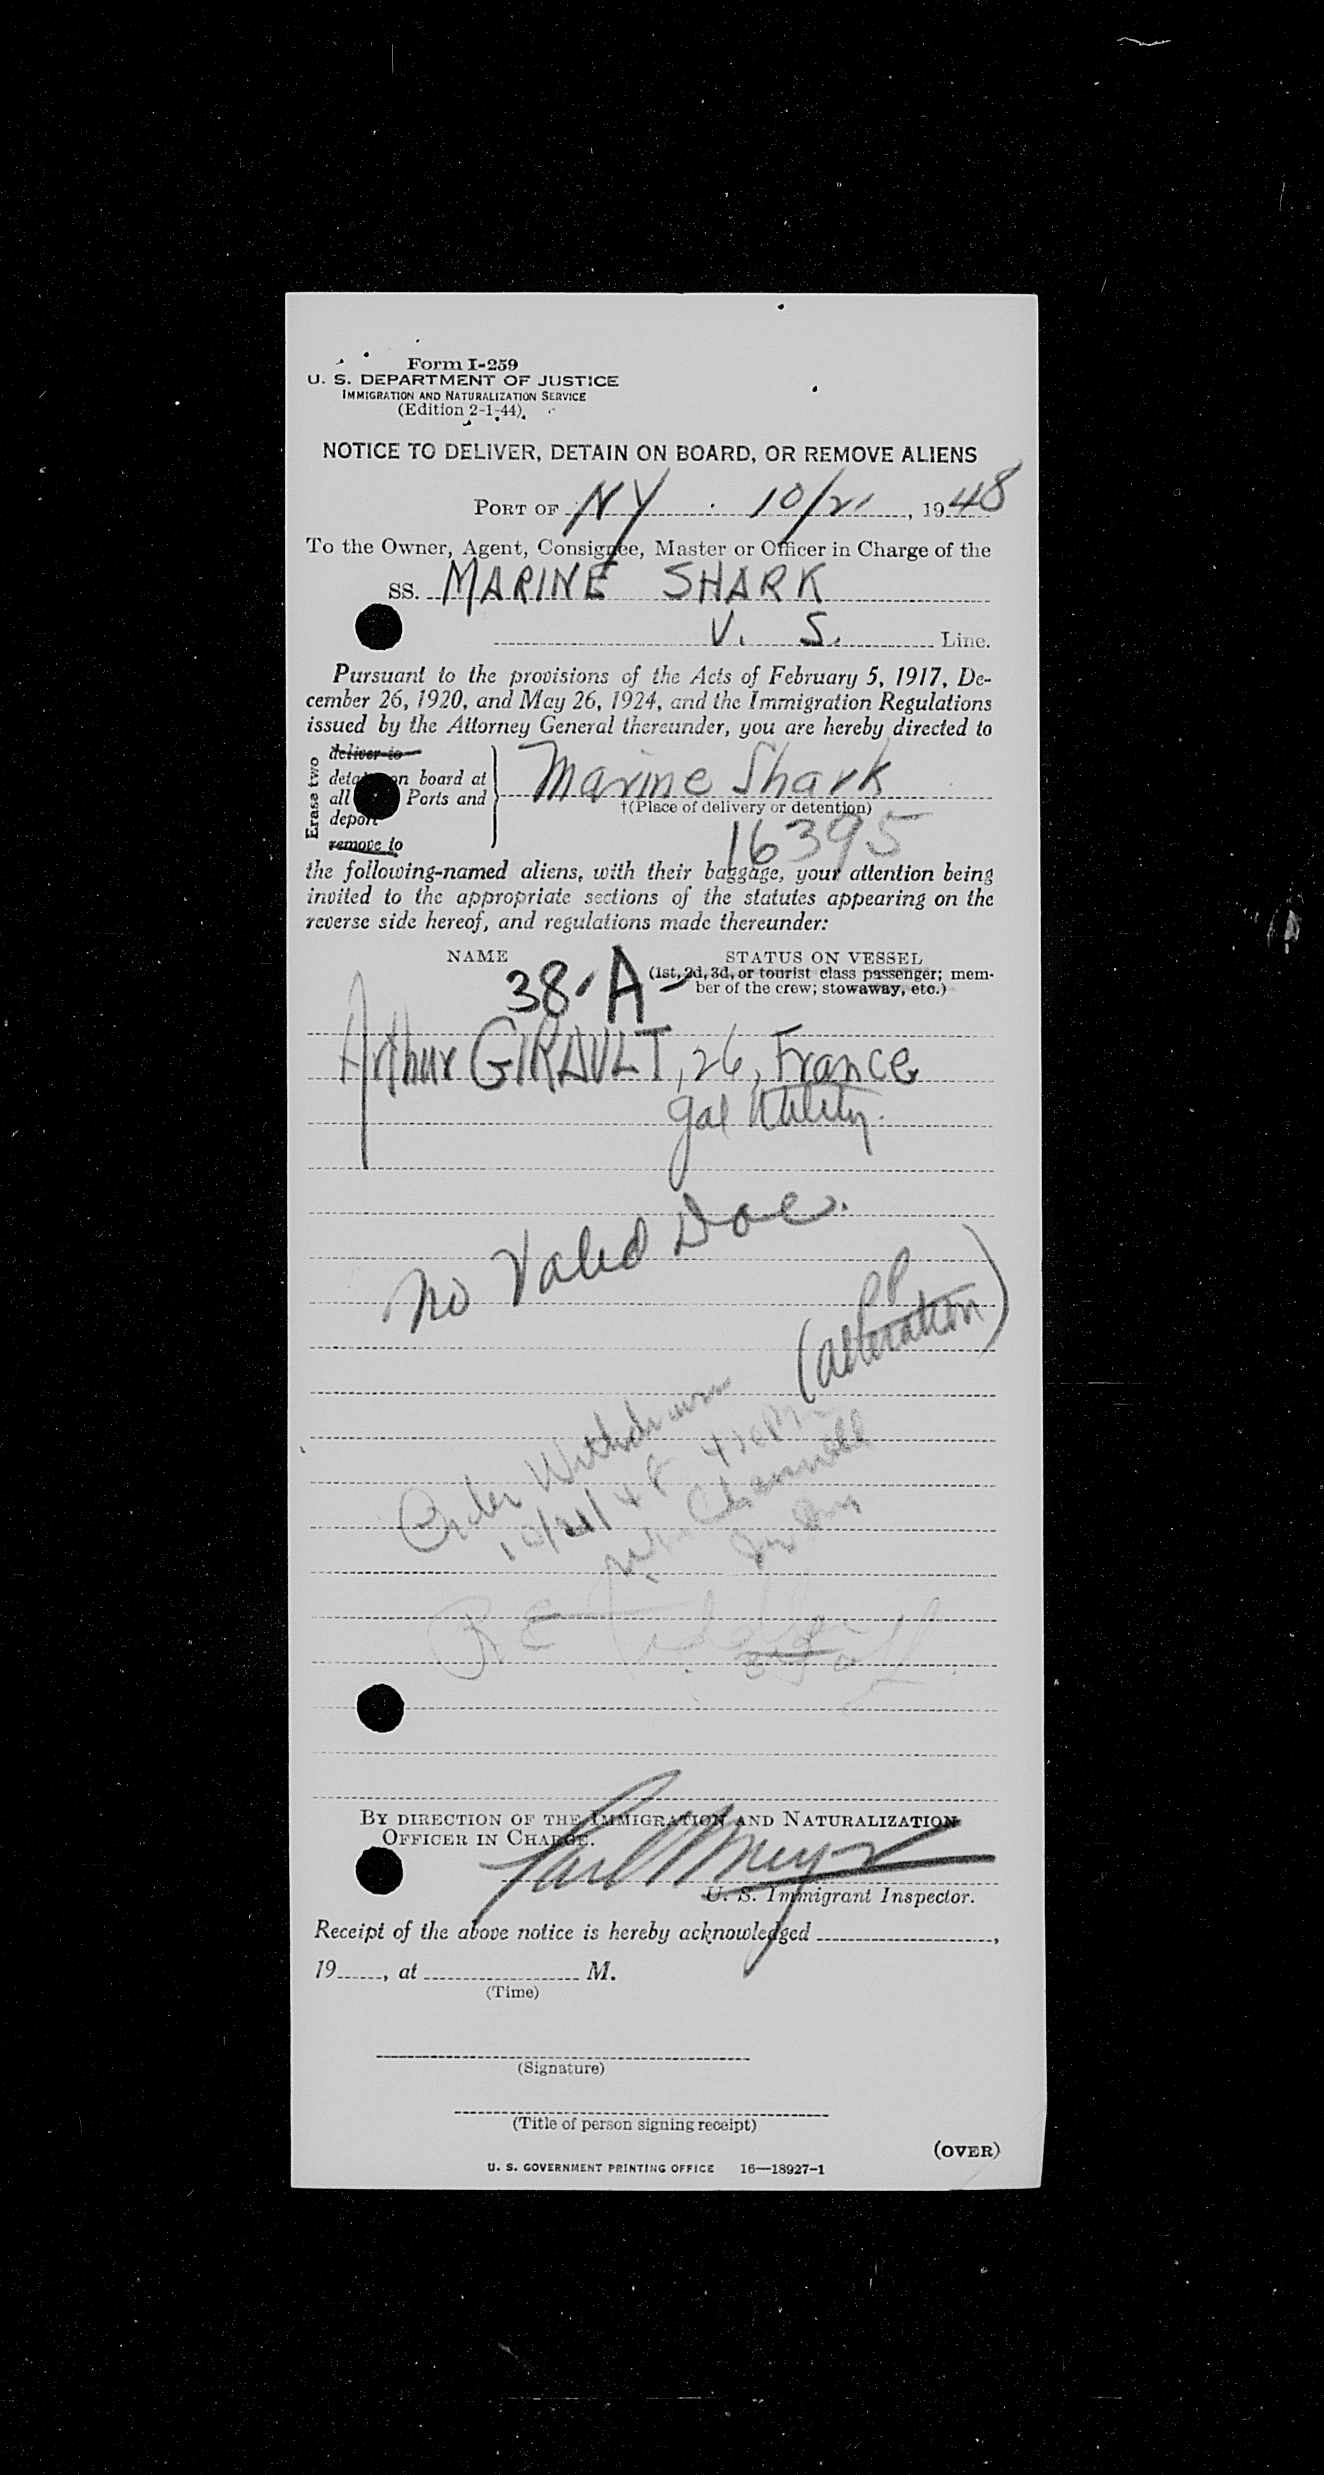 Form I-259
U. S. DEPARTMENT OF JUSTICE
IMMIGRATION AND NATURALIZATION SERVICE
(Edition 2-1-44)
NOTICE TO DELIVER, DETAIN ON BOARD, OR REMOVE ALIENS
PORT OF NY 10/21, 1948
To the Owner, Agent, Consignee, Master or Officer in Charge of the
SS. MARINE SHARK
U. S. Line.
Pursuant to the provisions of the Acts of February 5, 1917, De-
cember 26, 1920, and May 26, 1924, and the Immigration Regulations
issued by the Attorney General thereunder, you are hereby directed to
Erase two
deliver to
detain on board at
all Ports and
deport
remove to
Marine Shark
†(Place of delivery or detention)
16395
the following-named aliens, with their baggage, your attention being
invited to the appropriate sections of the statutes appearing on the
reverse side hereof, and regulations made thereunder:
NAME
STATUS ON VESSEL
(1st, 2d, 3d, or tourist class passenger; mem-
ber of the crew; stowaway, etc.)
38-A-
Arthur GIRAULT, 26, France
gal Utility.
No Valid Doc.
PP
(alteration)
Order Withdrawn
10/21/48
BY DIRECTION OF THE IMMIGRATION AND NATURALIZATION
OFFICER IN CHARGE.
U. S. Immigrant Inspector.
Receipt of the above notice is hereby acknowledged ,
19 , at M.
(Time)
(Signature)
(Title of person signing receipt)
(OVER)
U. S. GOVERNMENT PRINTING OFFICE 16—18927-1